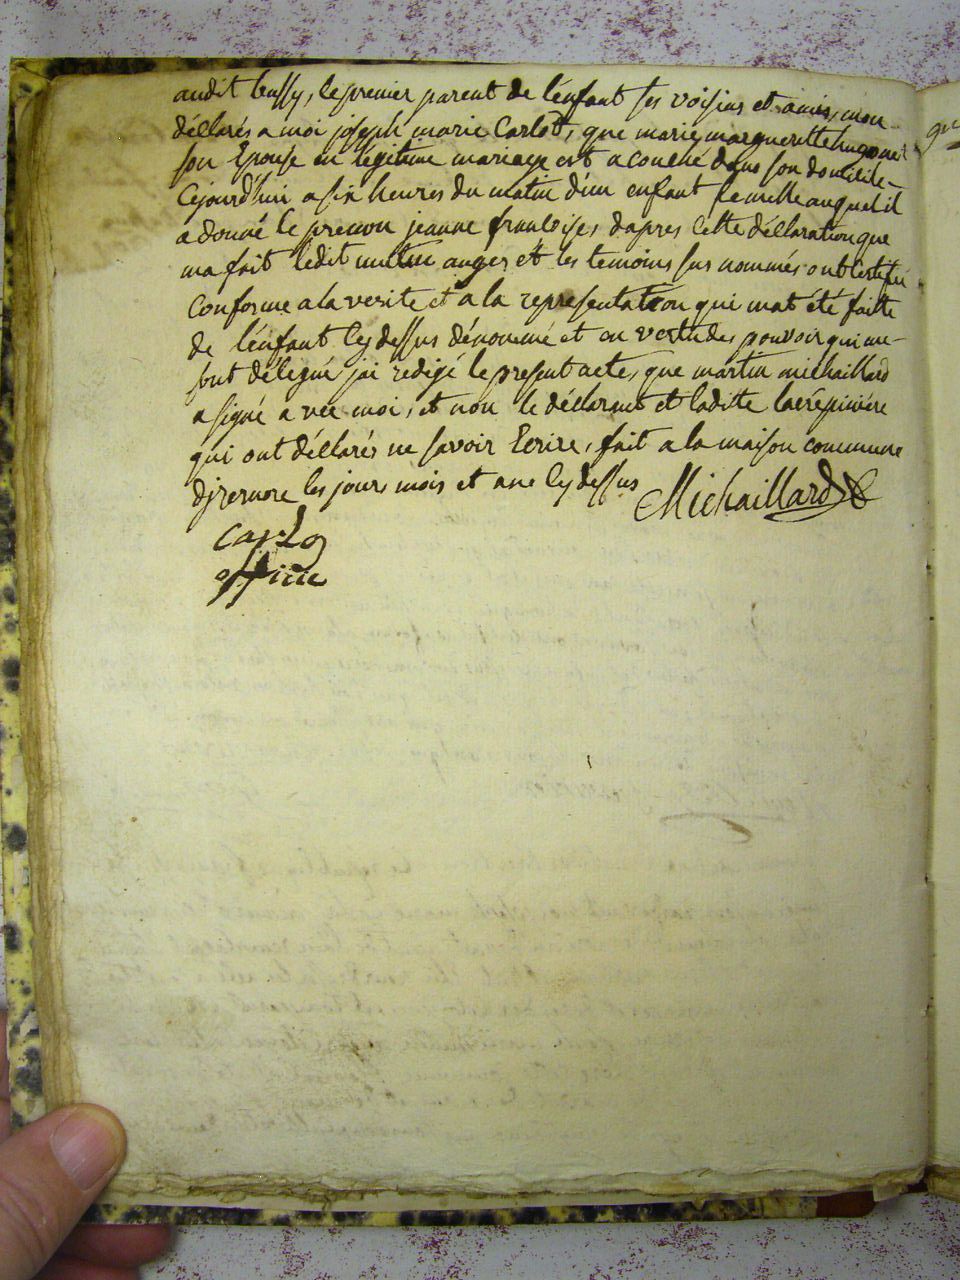 audit bussy, le premier parent de lenfant ses voisins et amis, mon
déllarés a moi joseph marie Carlot, que marie margueritte hugonet
son Epouse en légitime mariage est acouché dans son domicile
Cejourd'hui a six heures du matin d'un enfant femelle auquel il
a donné le prenon jeanne francoise, dapres cette déllaration que
ma fait ledit auger et les temoins sus nommés ont certifié
conforme a la verite et a la representation qui mat été faitte
de lénfant cy dessus dénommé et en vertu des pouvoir qui me
sont délegué jai redigé le present acte, que martin michaillard
a signé avec moi, et non le déllarant et ladite
qui ont déllarés ne savoir Ecrire, fait a la maison commune
les jours mois et ans cy dessus Michaillard
Carlo
officie